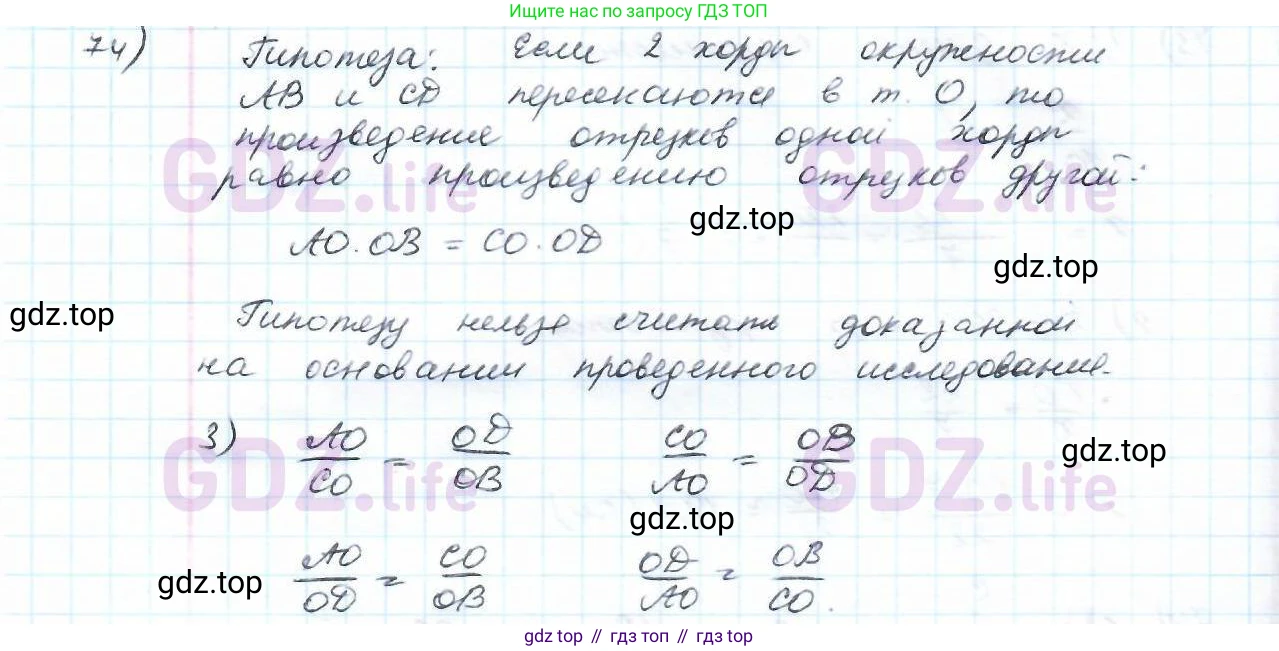 Ищите нас по запросу ГДЗ ТОП
74) Гипотеза: Если 2 хорды окружности
AB и CD пересекаются в т. O, то
произведение отрезков одной хорды
равно произведению отрезков другой:
GDZ.life GDZ.life
gdz.top
AO·OB = CO·OD
gdz.top
gdz.top
Гипотезу нельзя считать доказанной
на основании проведенного исследования.
3) AO/CO = OD/OB CO/AO = OB/OD
gdz.top
GDZ.life GDZ.life
gdz.top
AO/OD = CO/OB OD/AO = OB/CO.
gdz.top
gdz top // гдз топ // гдз top